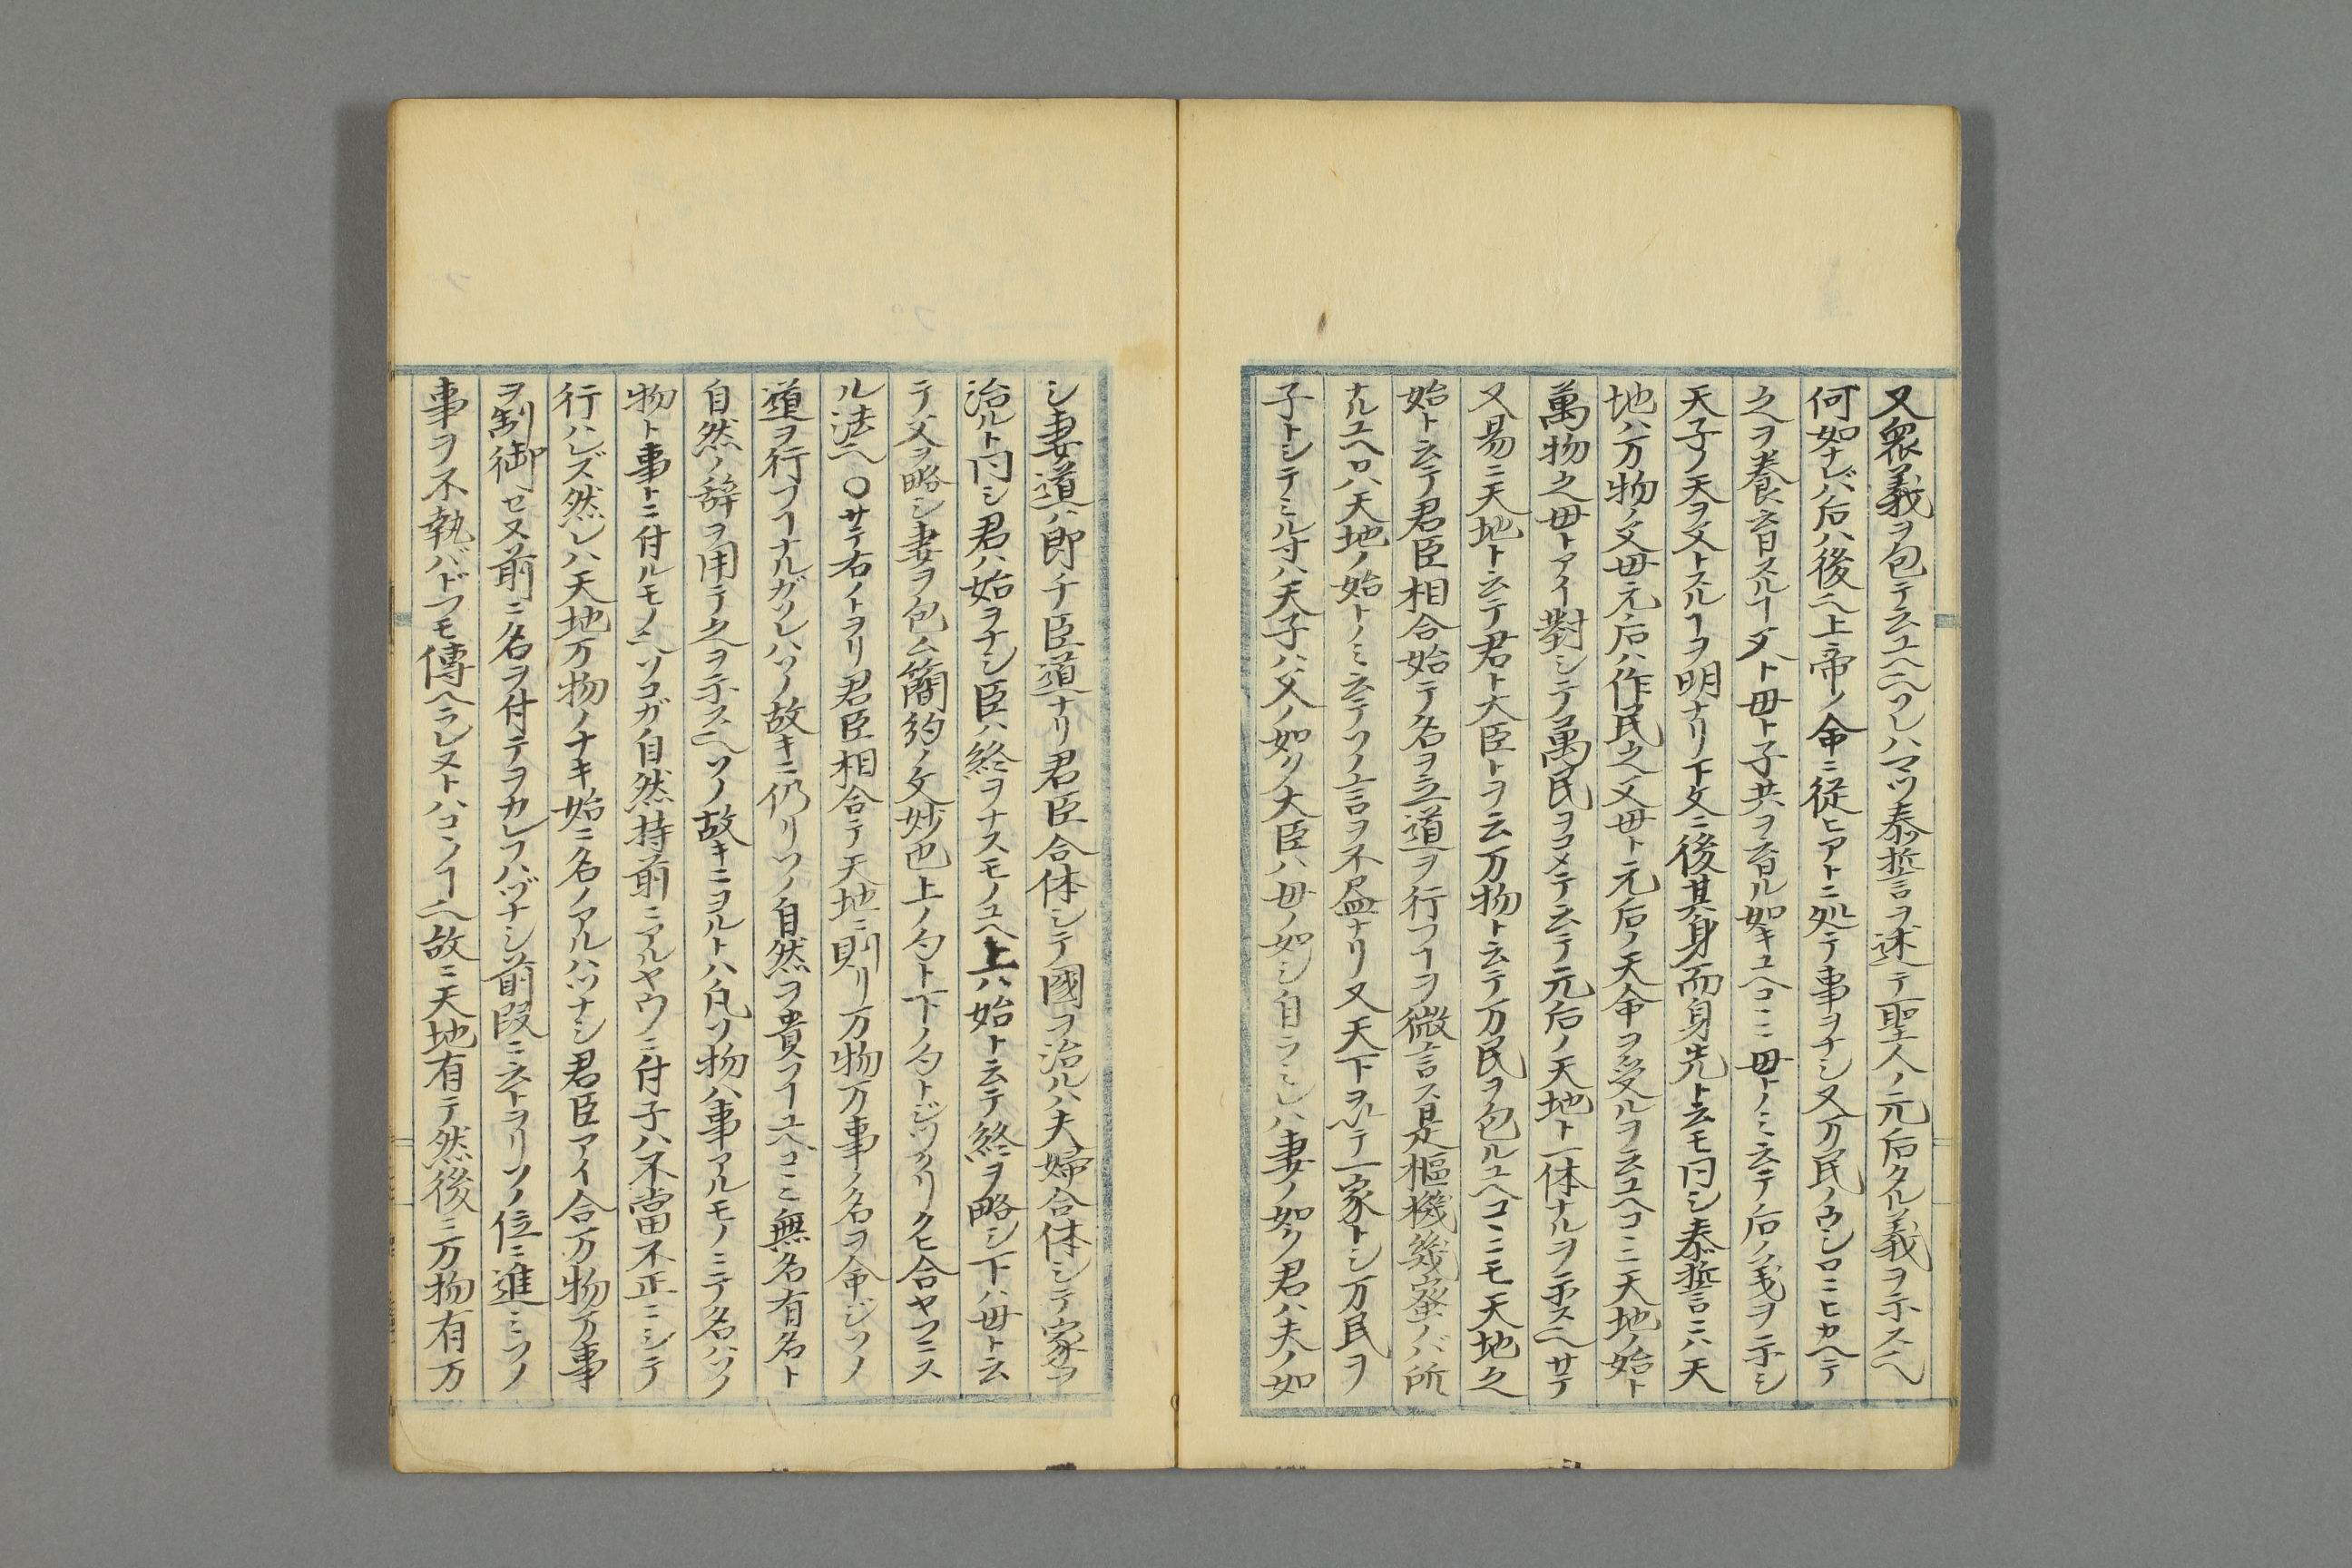 又衆義ヲ包テ云ユヘ也ソレハマツ泰誓ヲ述テ聖人ノ元后タル義ヲ示ス也
何如ナレバ后ハ後也上帝ノ命ニ従ヒアトニ処テ事ヲナシ又万民ノウシロニヒカヘテ
之ヲ養育スルヿ父ト母ト子共ヲ育ル如キユヘコヽニ母トノミ云テ后ノ義ヲ示シ
天子ノ天ヲ父トスルヿヲ明ナリ下文ニ後其身而身先ト云モ同シ泰誓ニハ天
地ハ万物ノ父母元后ハ作民之父母ト元后ノ天命ヲ受ルヲ云ユヘコヽニ天地ノ始ト
萬物之母トアイ對シテ萬民ヲコメテ云テ元后ノ天地ト一体ナルヲ示ス也サテ
又易ニ天地ト云テ君ト大臣トヲ云万物ト云テ万民ヲ包ルユヘコヽニモ天地之
始ト云テ君臣相合始テ名ヲ立道ヲ行フヿヲ微言ス是樞機幾蜜ノ所
ナルユヘ口ハ天地ノ始トノミ云テソノ言ヲ不盡ナリ又天下ヲ以テ一家トシ万民ヲ
子トシテミル寸ハ天子ハ父ノ如ク大臣ハ母ノ如シ自ラミレハ妻ノ如ク君ハ夫ノ如
シ妻道ハ即チ臣道ナリ君臣合体シテ國ヲ治ルハ夫婦合体シテ家ヲ
治ルト同シ君ハ始ヲナシ臣ハ終ヲナスモノユヘ上ハ始ト云テ終ヲ略シ下ハ母ト云
テ父ヲ略シ妻ヲ包ム簡約ノ文妙也上ノ句ト下ノ句トジツクリクヒ合ヤフニス
ル法也〇サテ右ノトヲリ君臣相合テ天地ニ則リ万物万事ノ名ヲ命ジソノ
道ヲ行フヿナルガソレハソノ故キニ仍リソノ自然ヲ貴フヿユヘコヽニ無名有名ト
自然ノ辞ヲ用テ之ヲ示ス也ソノ故キニヨルトハ凡ソ物ハ事アルモノニテ名ハソノ
物ト事トニ付ルモノ也ソコガ自然持前ニアルヤウニ付子ハ不當不正ニシテ
行ハレズ然レハ天地万物ノナキ始ニ名ノアルハツナシ君臣アイ合万物万事
ヲ制御セヌ前ニ名ヲ付テヲカレフハヅナシ前段ニ云トヲリソノ位ニ進ミソノ
事ヲ不執バドフモ傳ヘラレヌトハコノヿ也故ニ天地有テ然後ニ万物有万